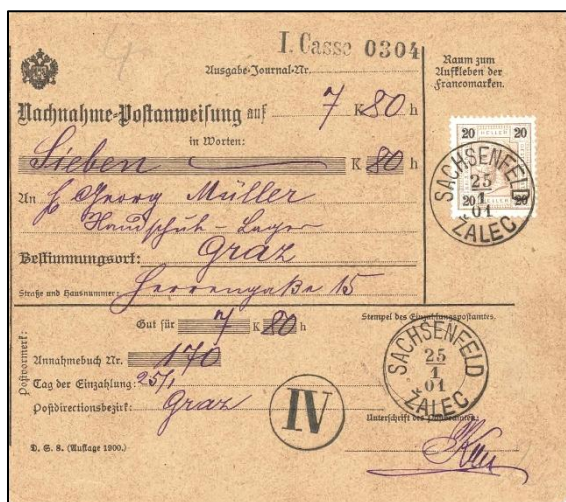 I. Casse 0304
Ausgabe-Journal-Nr.
Raum zum
Aufkleben der
Francomarken.
Nachnahme-Postanweisung auf 7 K 80 h
in Worten:
Sieben K 80 h
An H Georg Müller
Handschuh-Lager
Bestimmungsort: Graz
Straße und Hausnummer: Herrengaße 15
20 20
HELLER
20 20
SACHSENFELD
25
1
01
ŽALEC
Postvormerk:
Gut für 7 K 80 h
Annahmebuch Nr. 170
Tag der Einzahlung: 25/1
Postdirectionsbezirk: Graz
IV
D. S. 8. (Auflage 1900.)
Stempel des Einzahlungspostamtes.
SACHSENFELD
25
1
01
ŽALEC
Unterschrift des Postbeamten: